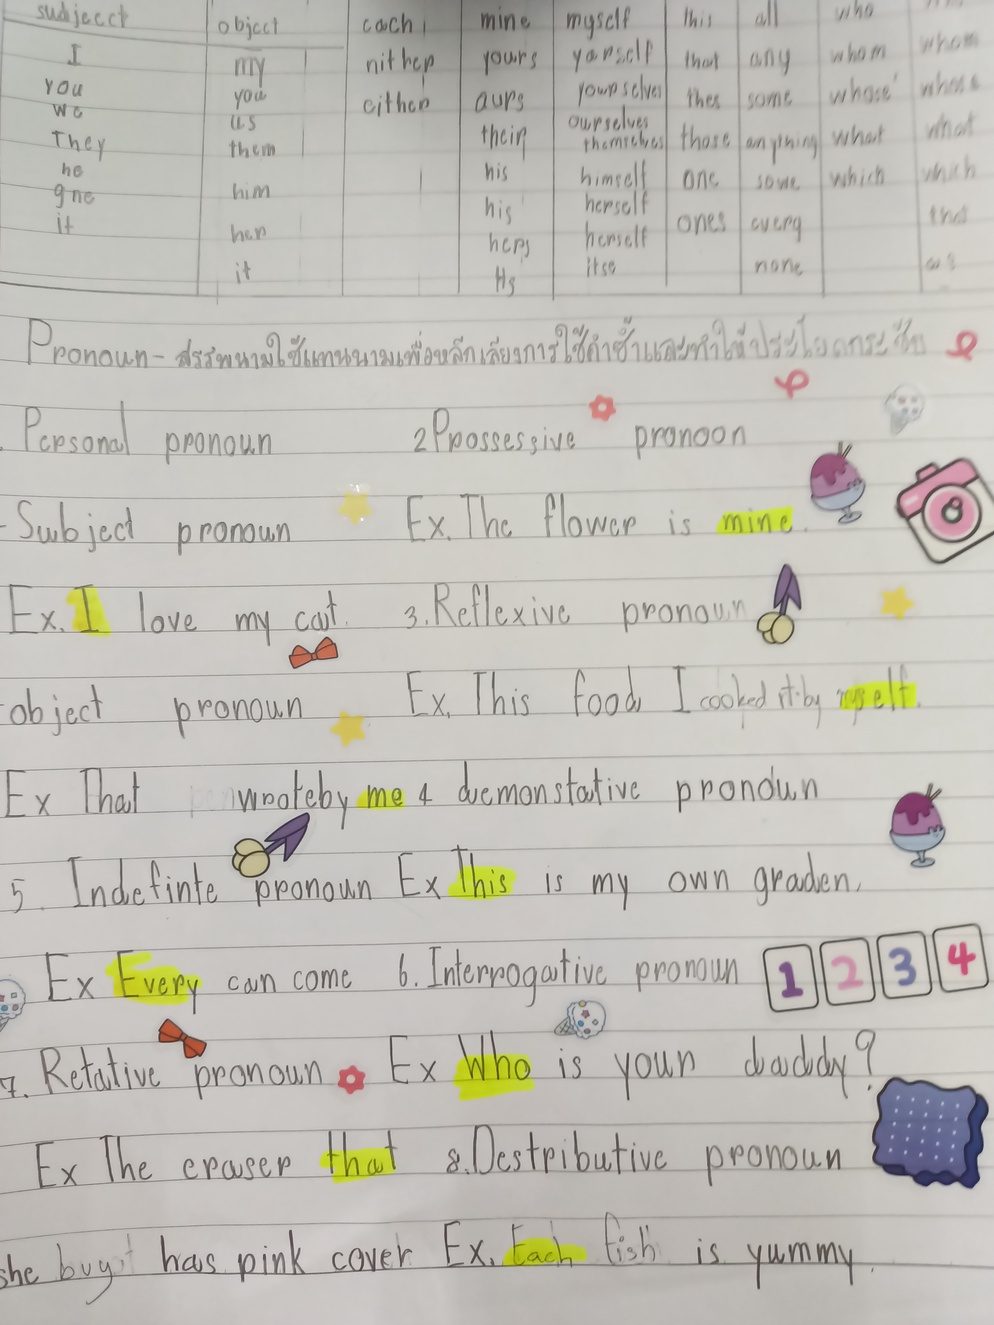 sudject object each mine myself this all who
I my nither yours yorself that any whom whom
you you either ours yourselves thes some whose whose
we us ourselves
They them their themselves those anything what what
he his himself one some which which
gne him his herself
it her hers herself ones every that
it Hs itse none as
Pronoun - สรรพนามใช้แทนนามเพื่อหลีกเลี่ยงการใช้คำซ้ำและทำให้ประโยคกระชับ
Personal pronoun 2 Prossessive pronoon
- Subject pronoun Ex. The flower is mine.
Ex. I love my cat. 3. Reflexive pronoun
- object pronoun Ex. This food I cooked it by myself.
Ex That wroteby me 4 demonstative pronoun
5. Indefinte pronoun Ex This is my own graden.
Ex Every can come 6. Interrogative pronoun 1 2 3 4
7. Retative pronoun Ex Who is your daddy?
Ex The eraser that 8. Destributive pronoun
she buy has pink cover Ex. Each fish is yummy.